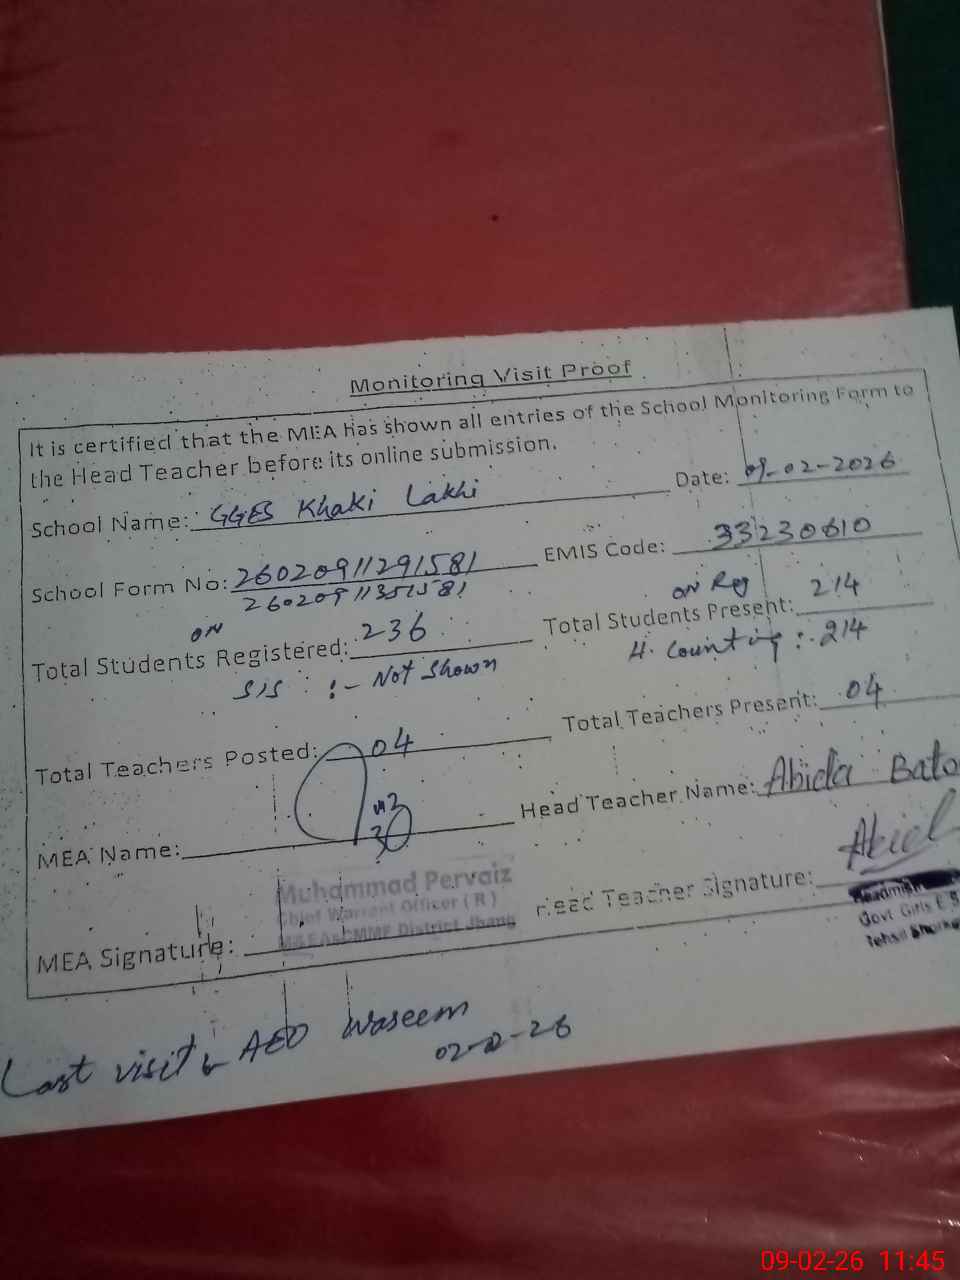 Monitoring Visit Proof
It is certified that the MEA has shown all entries of the School Monitoring Form to
the Head Teacher before its online submission.
School Name: GGES Khaki Lakhi Date: 09-02-2026
School Form No: 26020911291581 EMIS Code: 33230610
26020911351581
on on Reg
Total Students Registered: 236 Total Students Present: 214
SIS :- Not Shown H. Counting :- 214
Total Teachers Posted: 04 Total Teachers Present: 04
MEA Name: Head Teacher Name: Abida Bato
30
Muhammad Pervaiz
Chief Warrant Officer (R)
District Jhang
MEA Signature: Head Teacher Signature:
Govt Girls E S
Tehsil
Last visit AEO Waseem
02-2-26
09-02-26 11:45